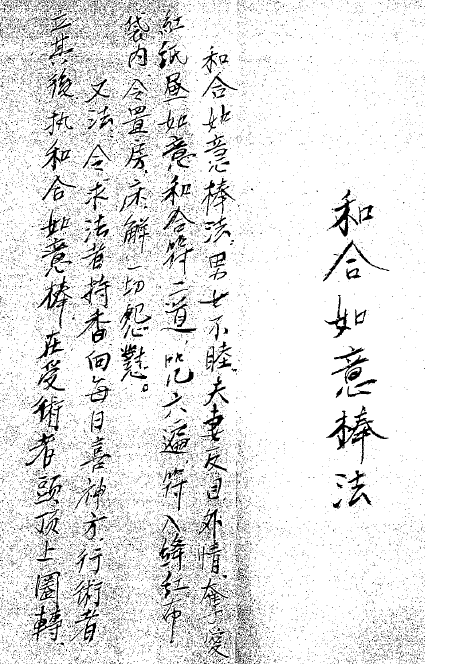 和合如意棒法
和合如意棒法，男女不睦，夫妻反目，外情奪愛，
紅紙畫如意和合符二道，咒六遍，符入絳紅布
袋内，令置房床，解一切怨懟。
又法，令求法者持香向每日喜神方，行術者
立其後，执和合如意棒，在受術者頭頂上圈轉，